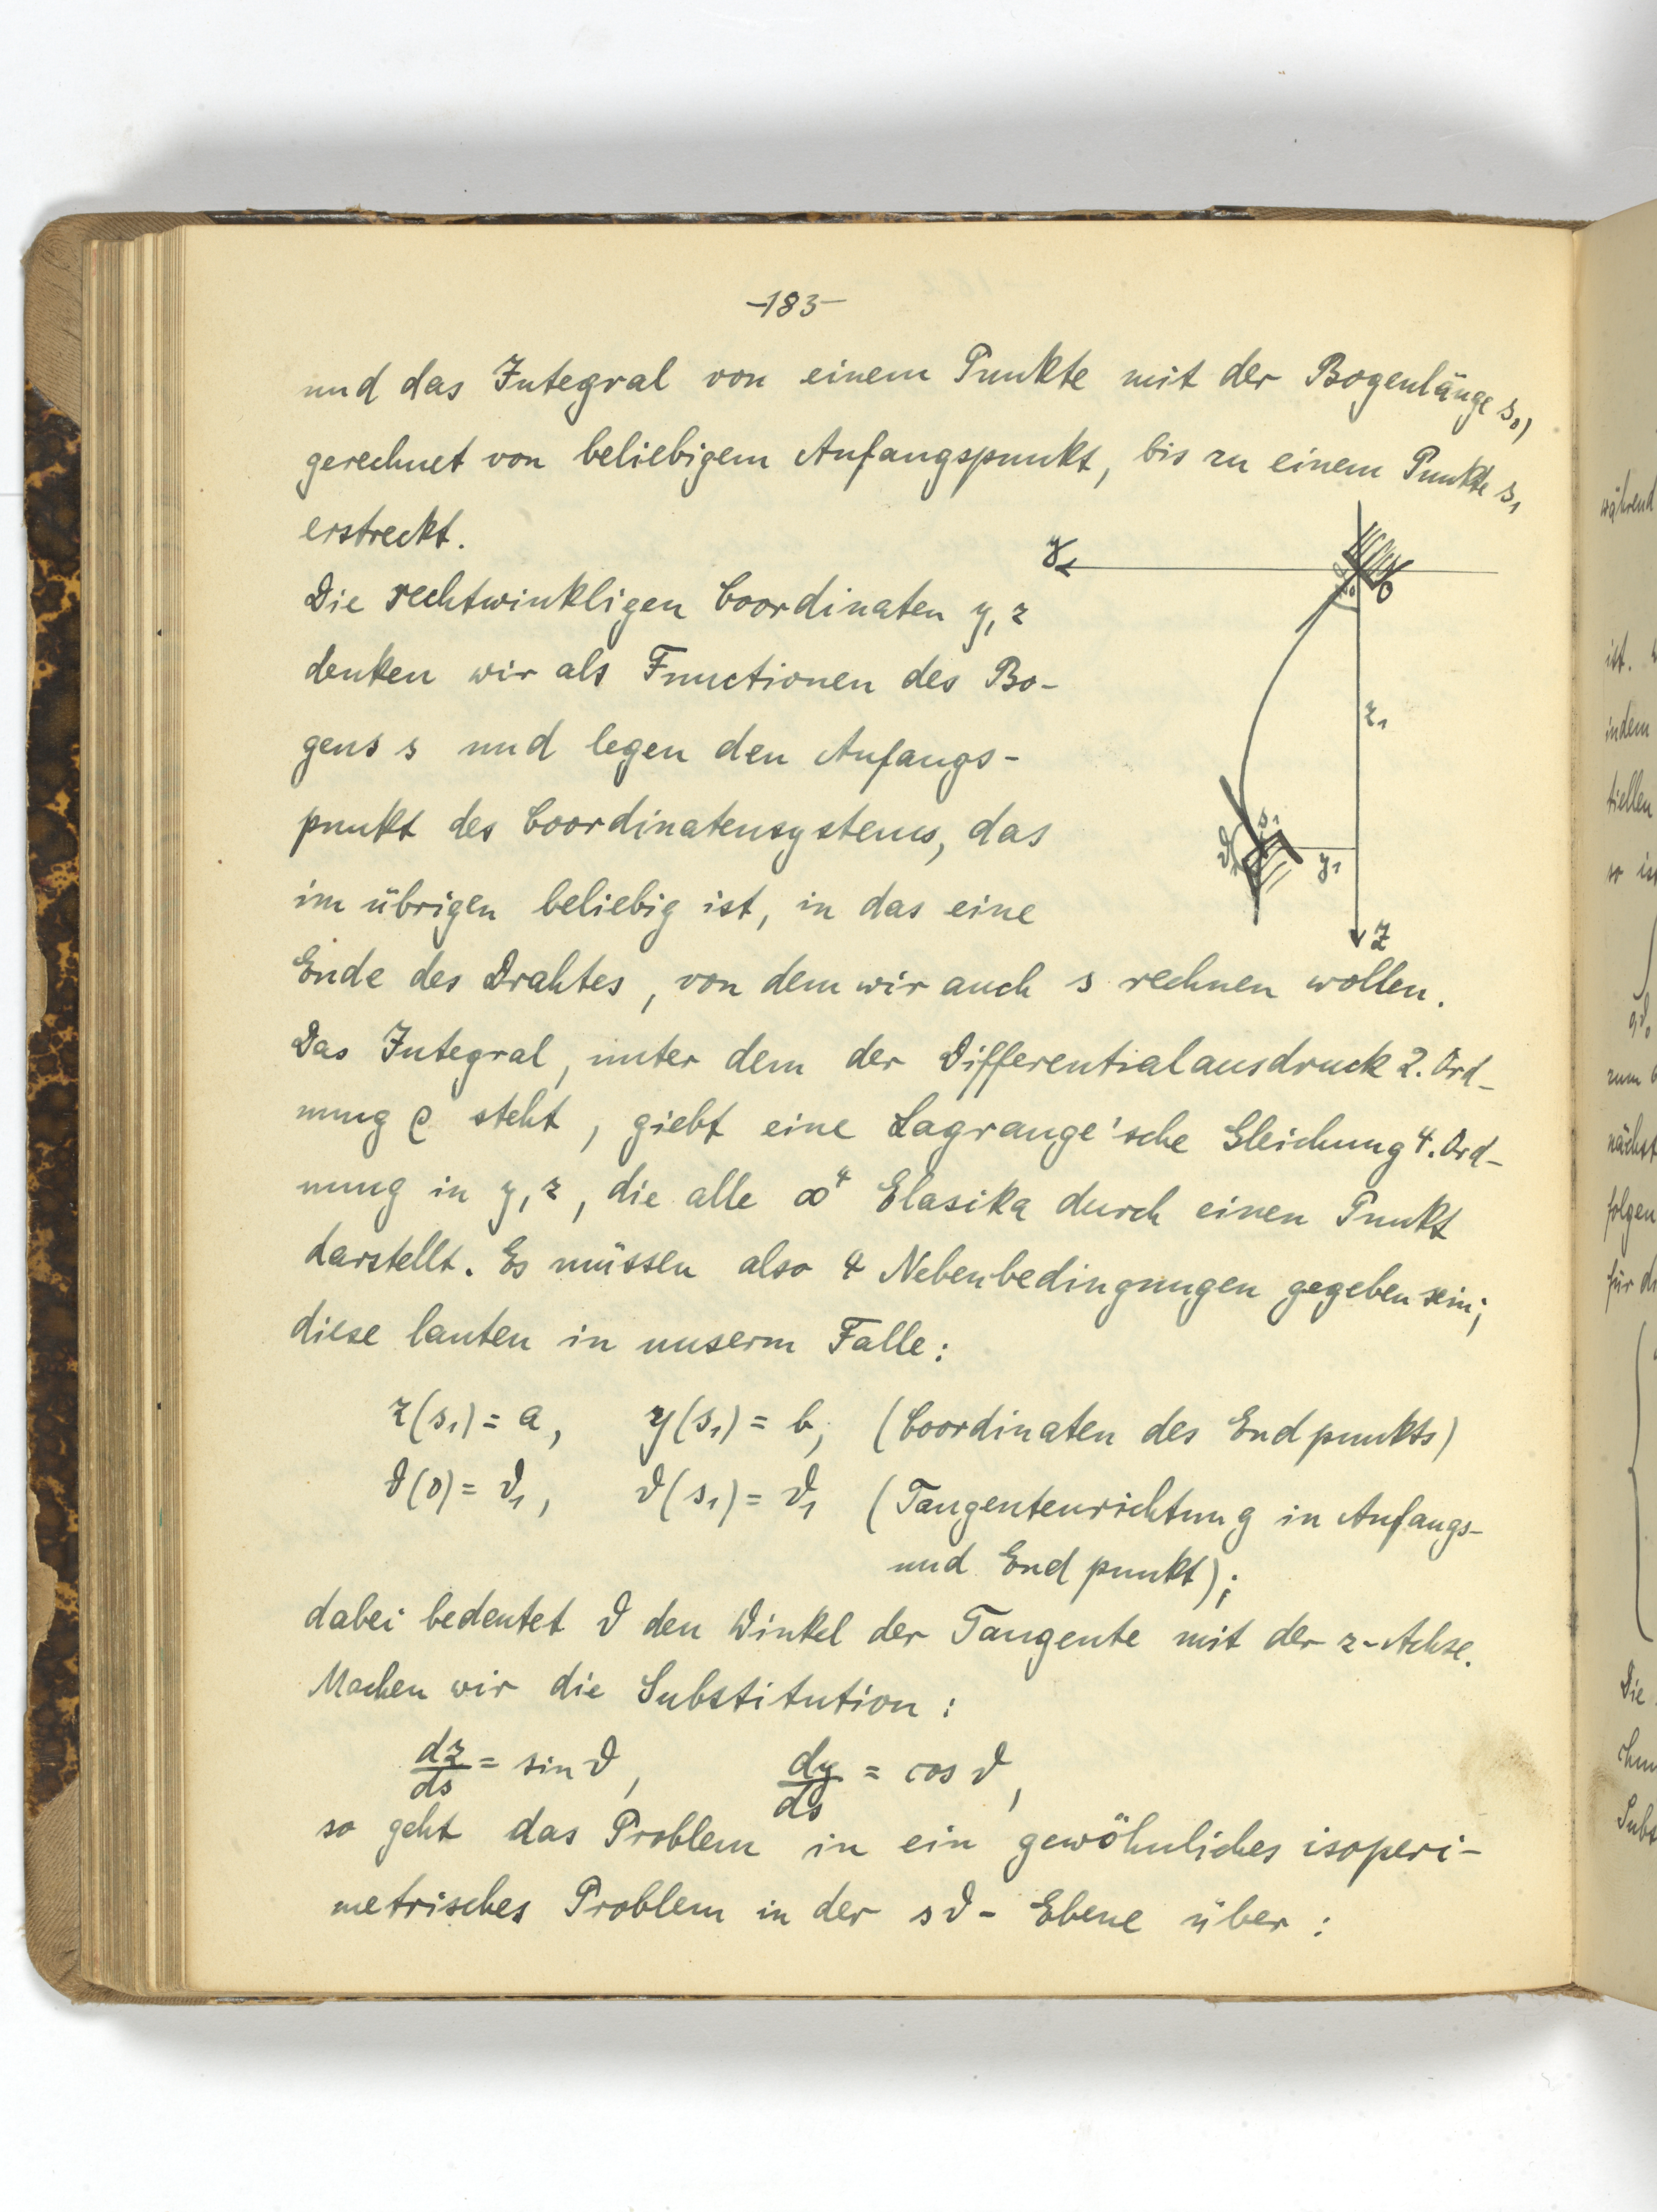 -183-
und das Integral von einem Punkte mit der Bogenlänge s₀,
gerechnet von beliebigem Anfangspunkt, bis zu einem Punkte s₁
erstreckt.
y
0
Die rechtwinkligen Coordinaten y, z
denken wir als Functionen des Bo-
z₁
gens s und legen den Anfangs-
punkt des Coordinatensystems, das
s₁
ϑ₁
y₁
im übrigen beliebig ist, in das eine
z
Ende des Drahtes, von dem wir auch s rechnen wollen.
Das Integral, unter dem der Differentialausdruck 2. Ord-
nung ρ steht, giebt eine Lagrange'sche Gleichung 4. Ord-
nung in y, z, die alle ∞⁴ Elasika durch einen Punkt
darstellt. Es müssen also 4 Nebenbedingungen gegeben sein;
diese lauten in unserm Falle:
z(s₁) = a, y(s₁) = b, (Coordinaten des Endpunkts)
ϑ(0) = ϑ₁, ϑ(s₁) = ϑ₁ (Tangentenrichtung in Anfangs-
und Endpunkt);
dabei bedeutet ϑ den Winkel der Tangente mit der z-Achse.
Machen wir die Substitution:
dz/ds = sin ϑ, dy/ds = cos ϑ,
so geht das Problem in ein gewöhnliches isoperi-
metrisches Problem in der sϑ-Ebene über:
während
ist.
indem
tiellen
so
zum
nächst
folgen
für
Die
Subs